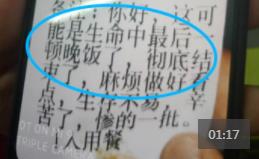 备注：你好，这可
能是生命中最后
顿晚饭了，彻底结
了，麻烦做好看
点，生存不易，辛
苦了，惨的一批。
人用餐
OT ON M
01:17